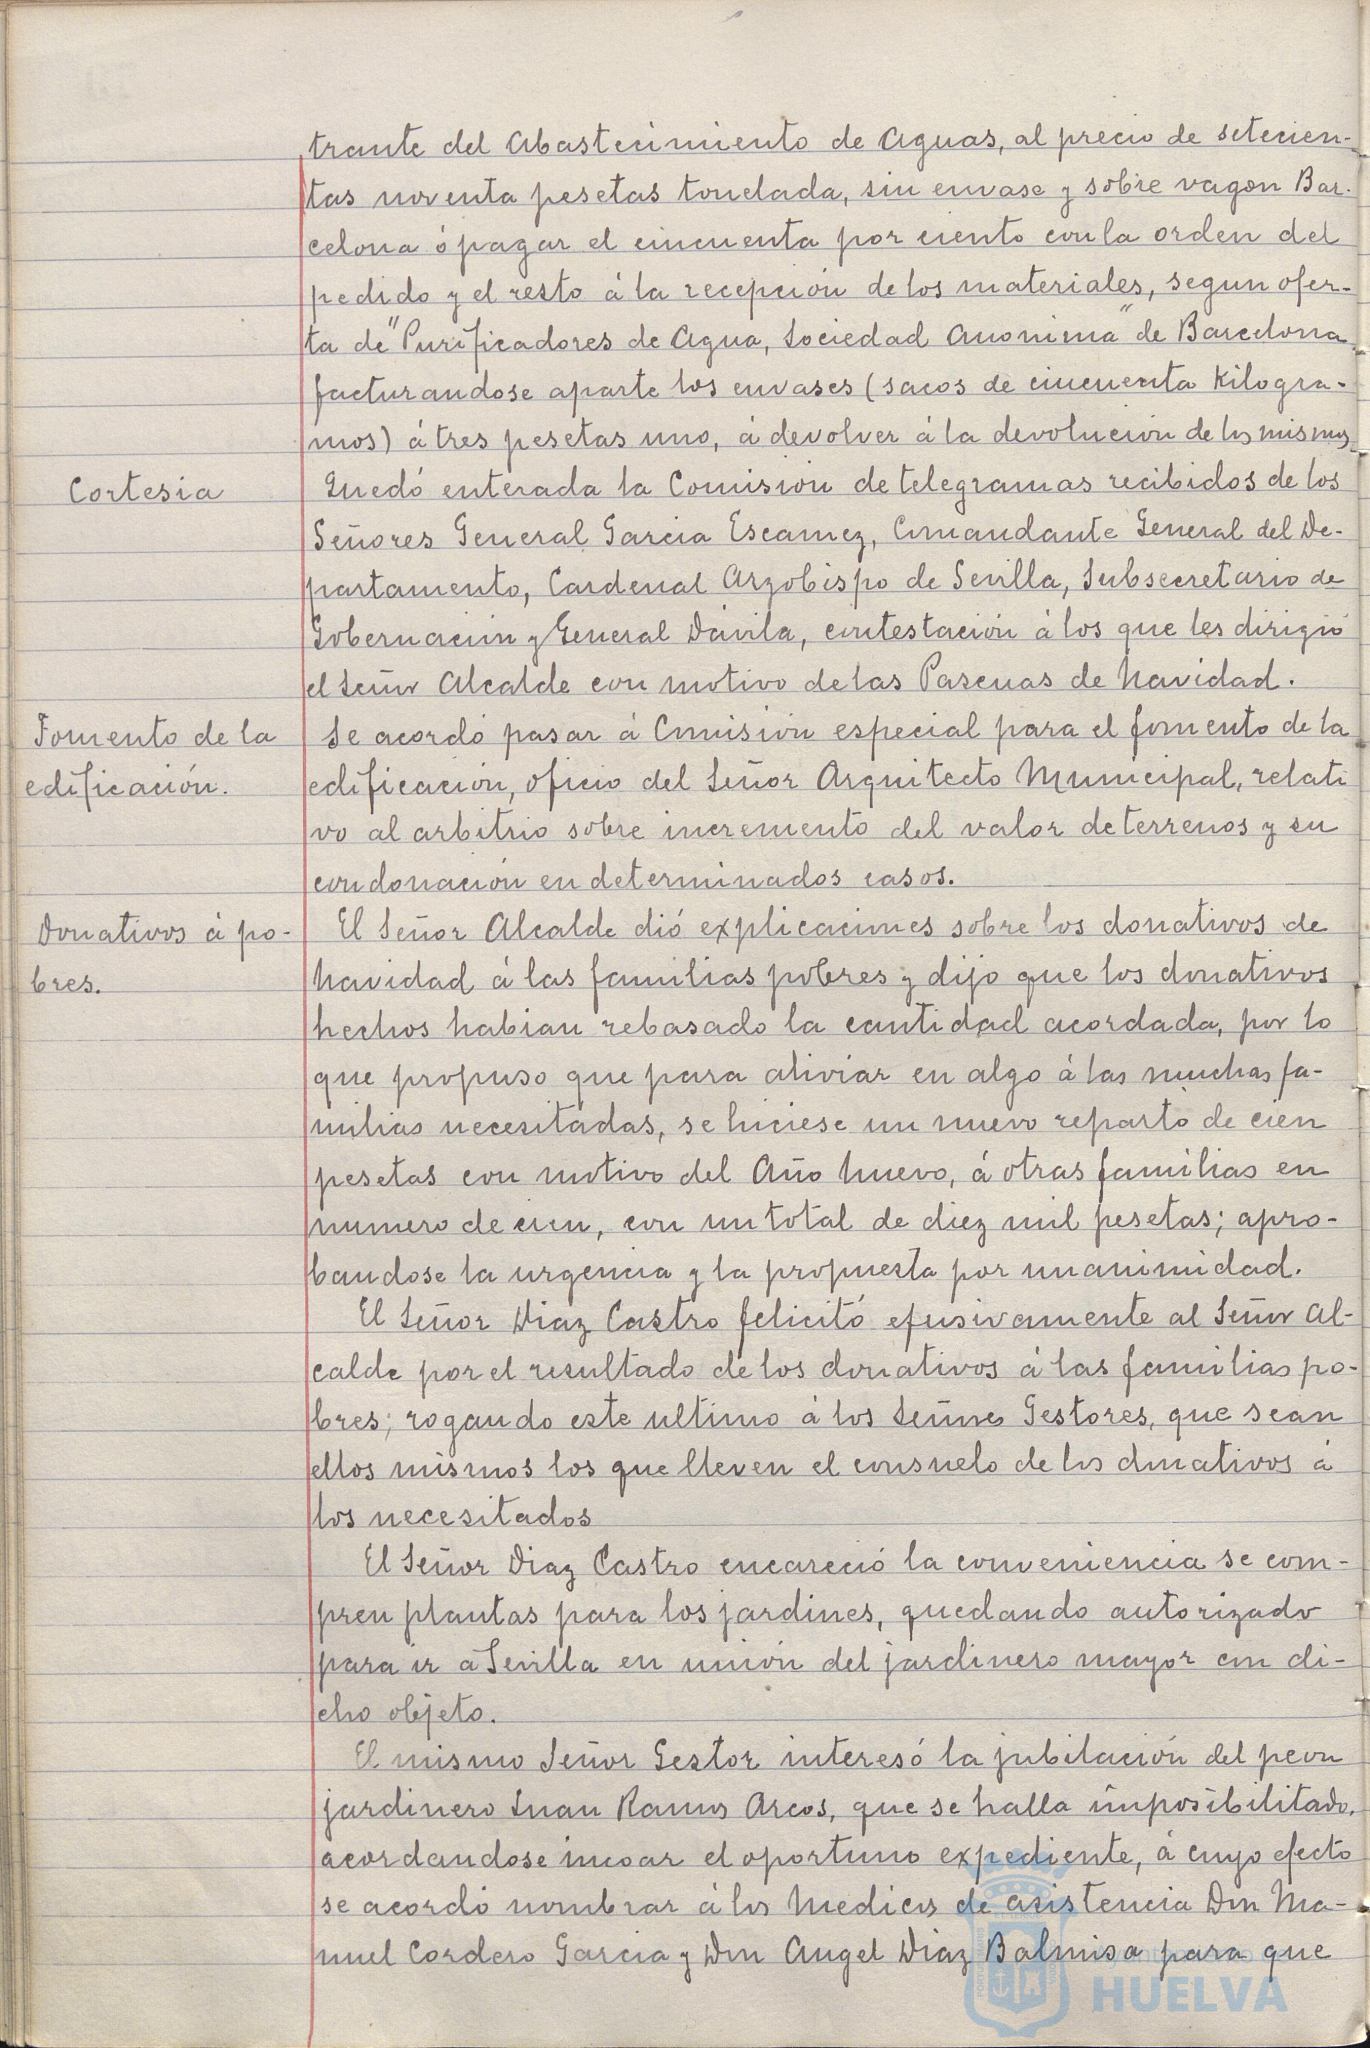 trante del Abastecimiento de Aguas, al precio de setecien-
tas noventa pesetas tonelada, sin envase y sobre vagon Bar-
celona ó pagar el cincuenta por ciento con la orden del
pedido y el resto á la recepción de los materiales, segun ofer-
ta de "Purificadores de Agua, Sociedad Anonima" de Barcelona
facturandose aparte los envases (sacos de cincuenta Kilogra-
mos) á tres pesetas uno, á devolver á la devolucion de los mismos
Cortesia
Quedó enterada la Comisión de telegramas recibidos de los
Señores General Garcia Escamez, Comandante General del De-
partamento, Cardenal Arzobispo de Sevilla, Subsecretario de
Gobernación y General Dávila, contestación á los que les dirigió
el Señor Alcalde con motivo de las Pascuas de Navidad.
Fomento de la
edificación.
Se acordó pasar á Comisión especial para el fomento de la
edificación, oficio del Señor Arquitecto Municipal, relati
vo al arbitrio sobre incremento del valor de terrenos y su
condonación en determinados casos.
Donativos á po-
bres.
El Señor Alcalde dió explicaciones sobre los donativos de
Navidad á las familias pobres y dijo que los donativos
hechos habian rebasado la cantidad acordada, por lo
que propuso que para aliviar en algo á las muchas fa-
milias necesitadas, se hiciese un nuevo reparto de cien
pesetas con motivo del Año Nuevo, á otras familias en
numero de cien, con un total de diez mil pesetas; apro-
bandose la urgencia y la propuesta por unanimidad.
El Señor Diaz Castro felicitó efusivamente al Señor Al-
calde por el resultado de los donativos á las familias po-
bres; rogando este ultimo á los Señores Gestores, que sean
ellos mismos los que lleven el consuelo de los donativos á
los necesitados
El Señor Diaz Castro encareció la conveniencia se com-
pren plantas para los jardines, quedando autorizado
para ir a Sevilla en unión del jardinero mayor con di-
cho objeto.
El mismo Señor Gestor interesó la jubilación del peon
jardinero Juan Ramos Arcos, que se halla imposibilitado,
acordandose incoar el oportuno expediente, á cuyo efecto
se acordó nombrar á los Medicos de asistencia Don Ma-
nuel Cordero Garcia y Don Angel Diaz Balmisa para que
HUELVA